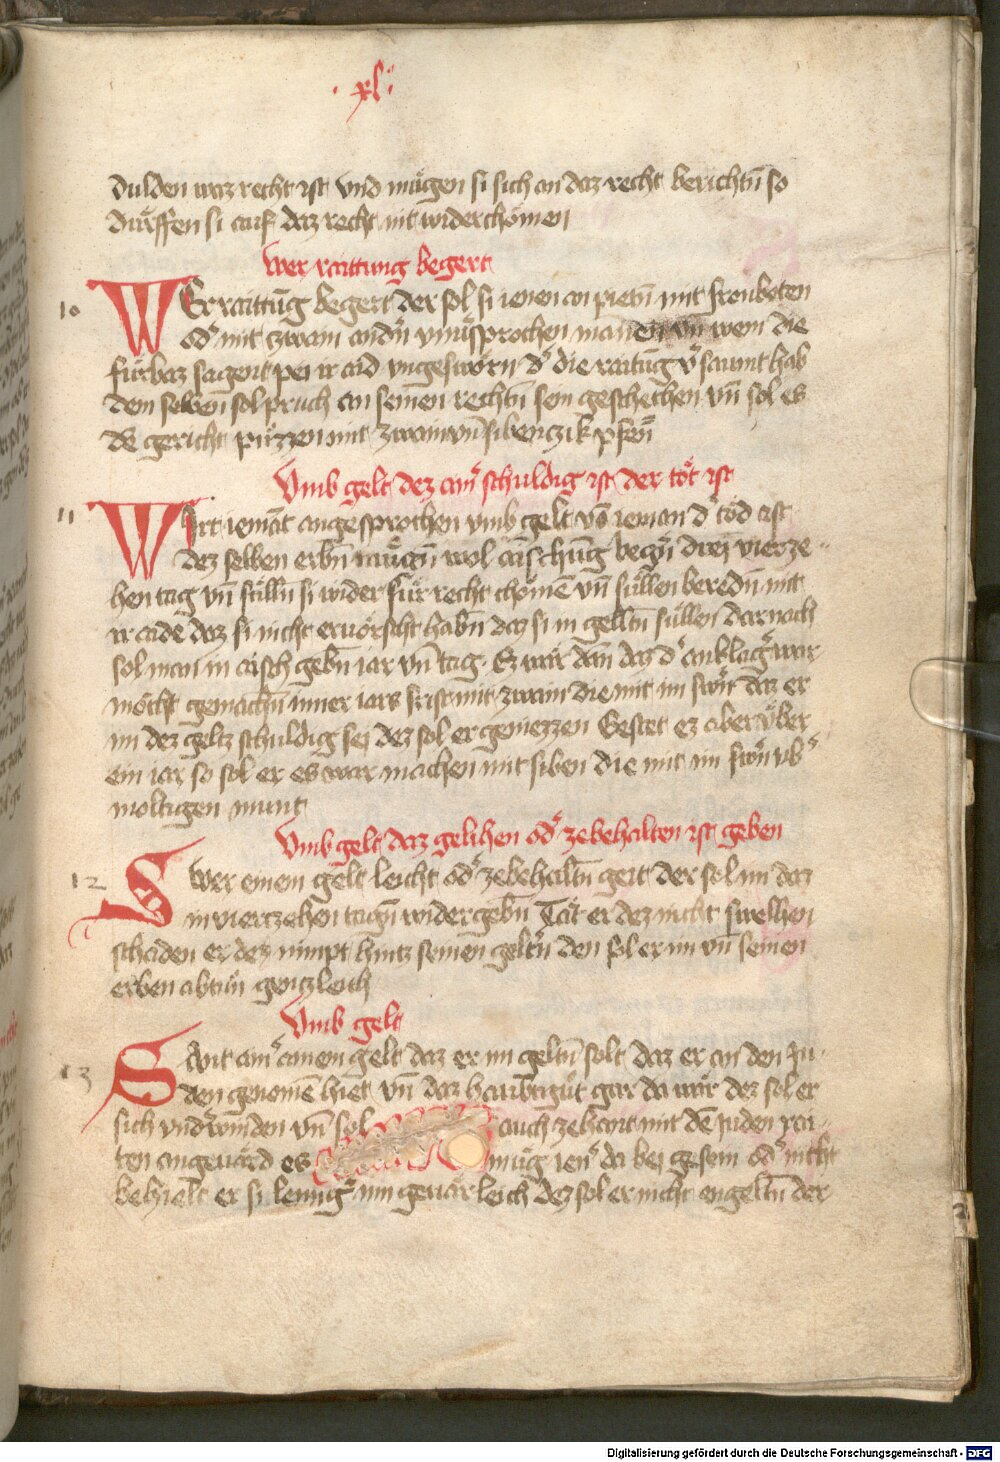 · xl ·
dulden waz recht ist vnd mügen si sich an daz recht bericht̄n so
dürffen si auf daz recht nit widerchömen
Wer raittung begert
10 WEr raittūg begert der sol si ienen an pietn̄ mit fronboten
od' mit zwain andn̄ vnu'sprochen mannen vn̄ wem die
fürbaz sagent pei ir aid vngeswörn d' die raitūg v'saumt hab
dem selben sol pruch an seinen rechtn̄ sein geschechen vn̄ sol es
dē gericht püzzen mit zwain vn̄ sibenczik pfen̄
Vmb gelt dez ain' schuldig ist der töt ist
11 Wirt iemāt angesprochen vmb gelt vō ieman d' töd ist
dez selben erbn̄ mügn̄ wol āischūg begn̄ drej vierze
hen tag vn̄ sülln̄ si wider für recht chömē vn̄ süllen beredn̄ mit
ir aidē daz si nicht eruorscht habn̄ daz si in geltn̄ süllen darnach
sol man in aisch gebn̄ iar vn̄ tag. Ez wär dan̄ daz d' anklag' war
möcht gemachn̄ inner iars frist mit zwain die mit im swrn̄ daz er
im dez geltz schuldig sej dez sol er geniezzen Gestet ez aber über
ein iar so sol er es war machen mit siben die mit im swrn̄ vb'
moltigen munt
Vmb gelt daz gelihen od' zebehalten ist geben
12 Swer einem gelt leicht od' zebehaltn̄ geit der sol im daz
in viertzehen tagn̄ widergebn̄ Tät er dez nicht swelhen
schaiden er dez nimpt hintz seinen geltn̄ den sol er im vn̄ seinen
erben abtün gentzleich
Vmb gelt
13 Sant ain' ainem gelt daz er im geltn̄ solt daz er an den Ju
den genomē hiet vn̄ daz haubtgüt gar da wär dez sol er
sich vnd'winden vn̄ sol auch zehant mit dē Juden rai
ten angeuärd es müg ien' da bei gesein od' nicht
behielt er si lenng' im geuärleich dez sol er nicht engeltn̄ der
Digitalisierung gefördert durch die Deutsche Forschungsgemeinschaft - DFG